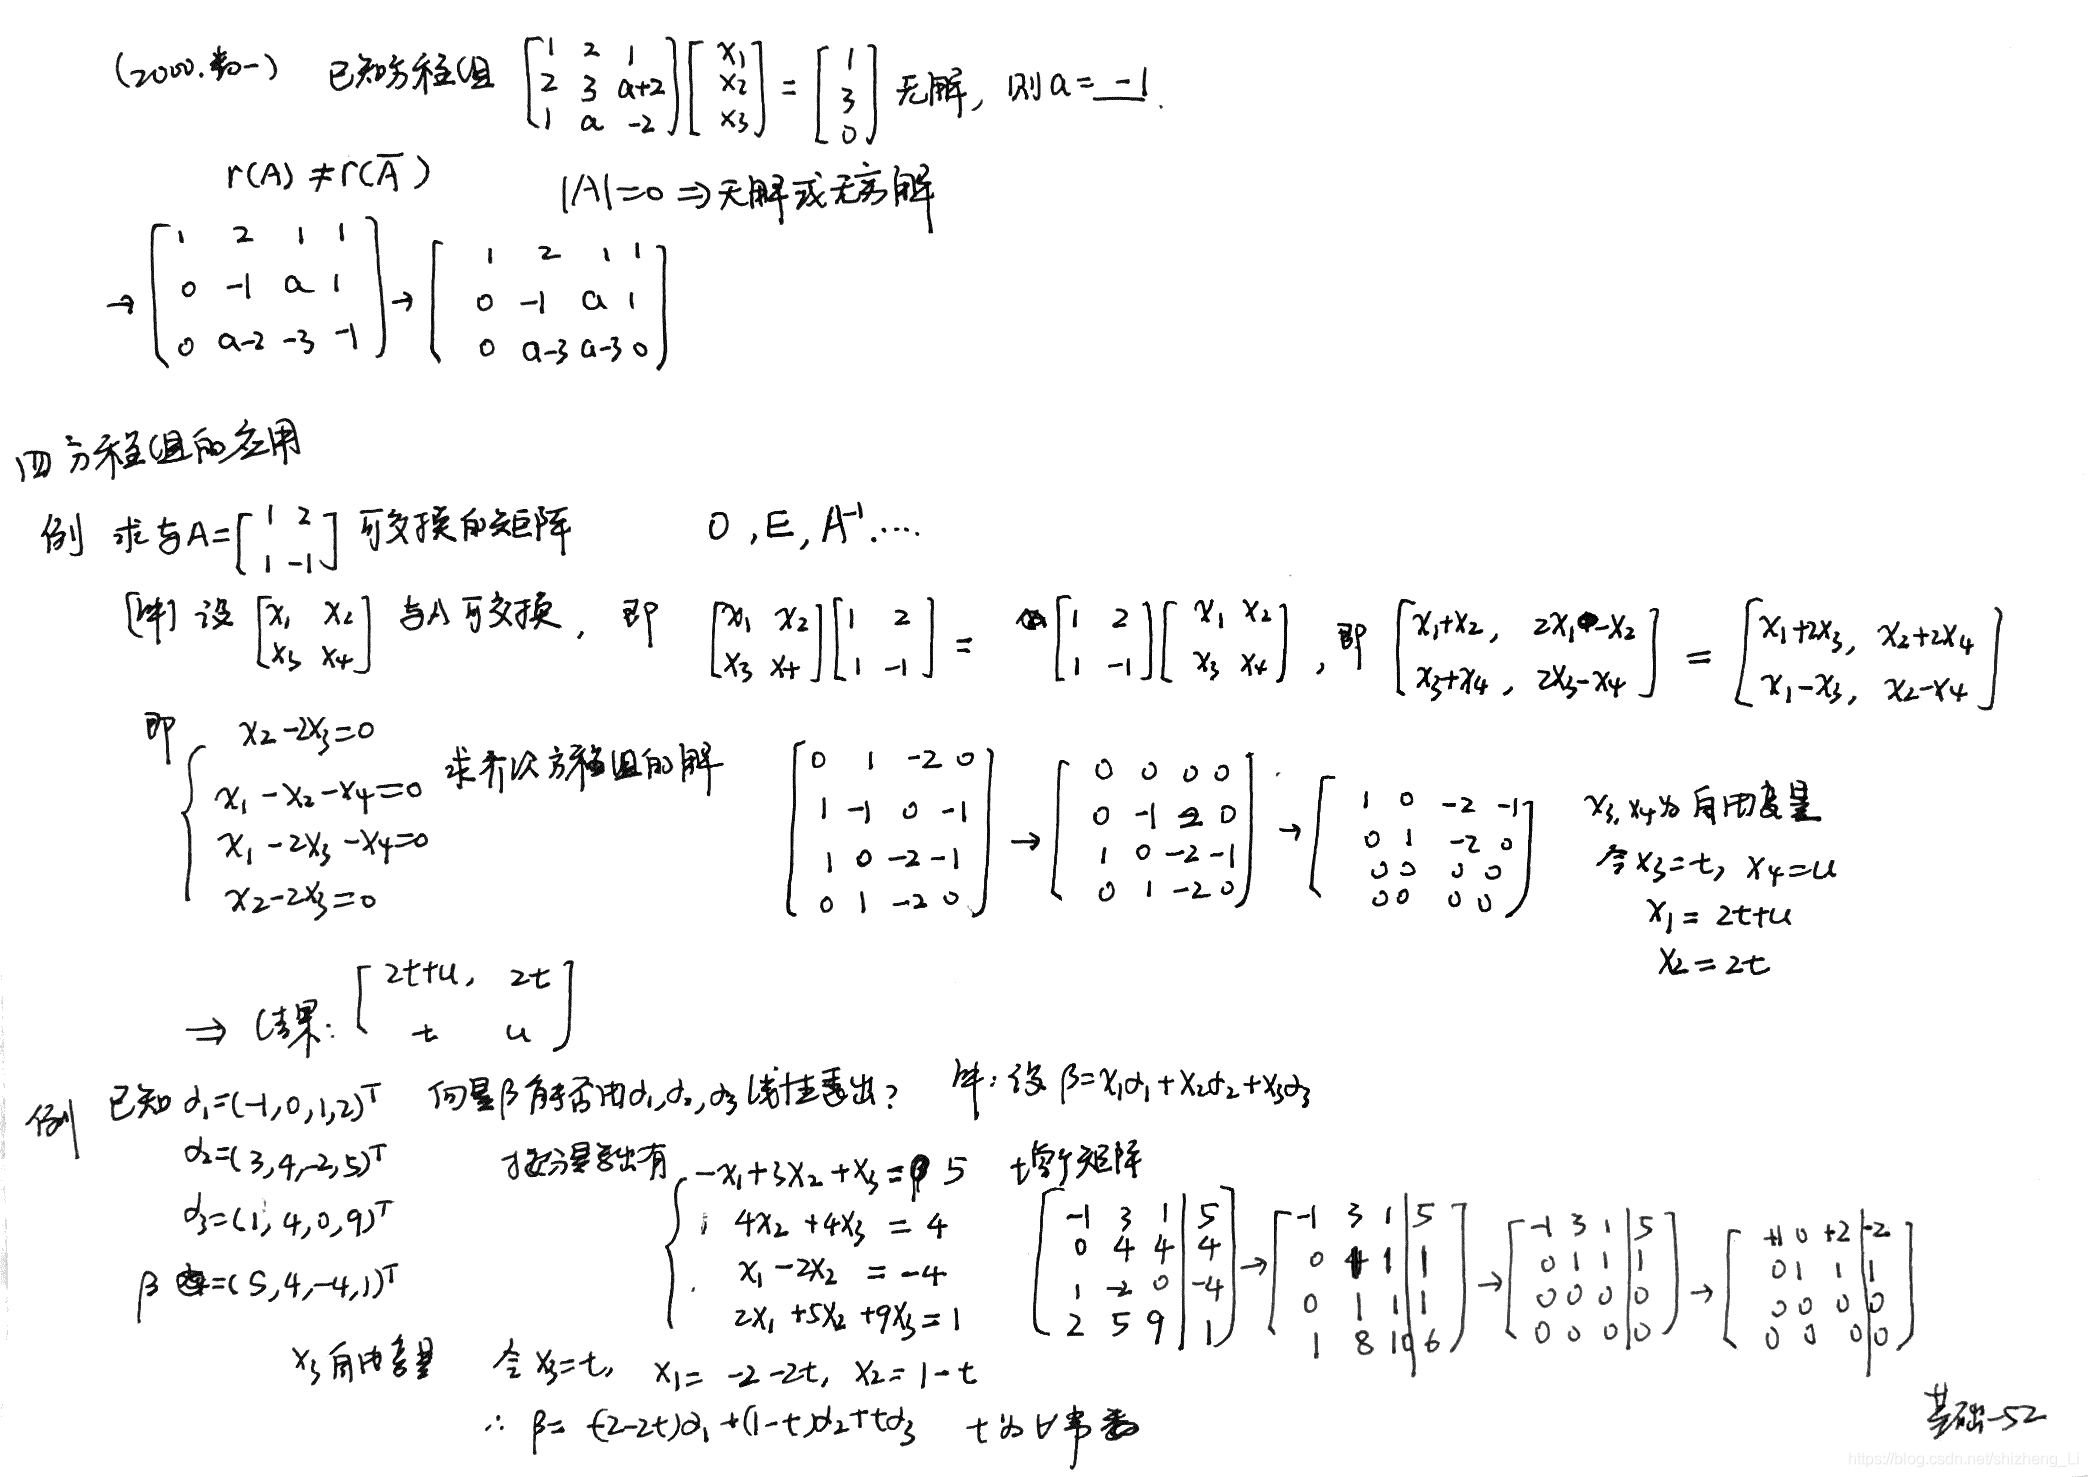 (2000.数一) 已知方程组 [1 2 1; 2 3 a+2; 1 a -2][x₁; x₂; x₃] = [1; 3; 0] 无解, 则a= -1 .
r(A) ≠ r(A̅) |A|=0 ⇒ 无解或无穷解
→ [1 2 1 1; 0 -1 a 1; 0 a-2 -3 -1] → [1 2 1 1; 0 -1 a 1; 0 a-3 a-3 0]
四 方程组的应用
例 求与A=[1 2; 1 -1] 可交换的矩阵 0 , E , A⁻¹ ....
[解] 设 [x₁ x₂; x₃ x₄] 与A可交换, 即 [x₁ x₂; x₃ x₄][1 2; 1 -1] = [1 2; 1 -1][x₁ x₂; x₃ x₄], 即 [x₁+x₂, 2x₁-x₂; x₃+x₄, 2x₃-x₄] = [x₁+2x₃, x₂+2x₄; x₁-x₃, x₂-x₄]
即 { x₂-2x₃=0
x₁-x₂-x₄=0
x₁-2x₃-x₄=0
x₂-2x₃=0
求齐次方程组的解 [0 1 -2 0; 1 -1 0 -1; 1 0 -2 -1; 0 1 -2 0] → [0 0 0 0; 0 -1 2 0; 1 0 -2 -1; 0 1 -2 0] → [1 0 -2 -1; 0 1 -2 0; 0 0 0 0; 0 0 0 0]
x₃, x₄为自由变量
令x₃=t, x₄=u
x₁=2t+u
x₂=2t
⇒ 结果: [2t+u, 2t; t u]
例 已知 α₁=(-1,0,1,2)ᵀ 向量β能否由α₁,α₂,α₃线性表出? 解: 设 β=x₁α₁+x₂α₂+x₃α₃
α₂=(3,4,-2,5)ᵀ
α₃=(1,4,0,9)ᵀ
β =(5,4,-4,1)ᵀ
按分量写出有 { -x₁+3x₂+x₃= 5
4x₂+4x₃=4
x₁-2x₂=-4
2x₁+5x₂+9x₃=1
增广矩阵
[-1 3 1 | 5; 0 4 4 | 4; 1 -2 0 | -4; 2 5 9 | 1] → [-1 3 1 | 5; 0 1 1 | 1; 0 1 1 | 1; 1 8 10 | 6] → [-1 3 1 | 5; 0 1 1 | 1; 0 0 0 | 0; 0 0 0 | 0] → [+1 0 +2 | -2; 0 1 1 | 1; 0 0 0 | 0; 0 0 0 | 0]
x₃自由变量 令x₃=t, x₁=-2-2t, x₂=1-t
∴ β=(-2-2t)α₁+(1-t)α₂+tα₃ t为∀常数
基础-52
https://blog.csdn.net/shizheng_Li